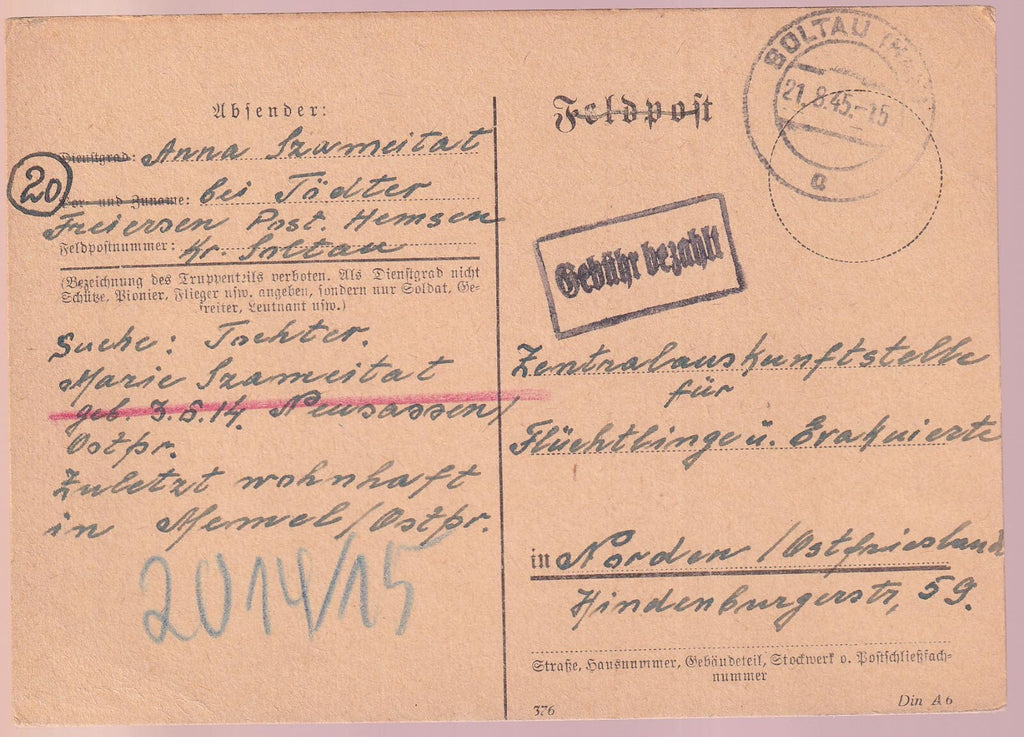 Absender:
Dienstgrad: Anna Szameitat
20
Vor- und Zuname: bei Tödter
Freiersen Post. Hemsen
Feldpostnummer: Kr. Soltau
(Bezeichnung des Truppenteils verboten. Als Dienstgrad nicht
Schütze, Pionier, Flieger usw. angeben, sondern nur Soldat, Ge-
freiter, Leutnant usw.)
Suche: Tochter.
Marie Szameitat
geb. 3.6.14. Neusassen/
Ostpr.
Zuletzt wohnhaft
in Memel/Ostpr.
2014/15
Feldpost
SOLTAU
21.8.45.-15
a
Gebühr bezahlt
Zentralauskunftstelle
für
Flüchtlinge u. Evakuierte
in Norden/Ostfriesland
Hindenburgerstr, 59.
Straße, Hausnummer, Gebäudeteil, Stockwerk o. Postschließfach-
nummer
376
Din A 6